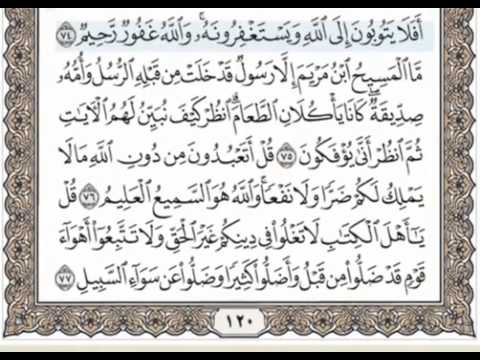 أَفَلَا يَتُوبُونَ إِلَى اللَّهِ وَيَسْتَغْفِرُونَهُۥ ۚ وَاللَّهُ غَفُورٌ رَّحِيمٌ ٧٤
مَّا الْمَسِيحُ ابْنُ مَرْيَمَ إِلَّا رَسُولٌ قَدْ خَلَتْ مِن قَبْلِهِ الرُّسُلُ وَأُمُّهُۥ
صِدِّيقَةٌ ۖ كَانَا يَأْكُلَانِ الطَّعَامَ ۗ انظُرْ كَيْفَ نُبَيِّنُ لَهُمُ الْآيَاتِ
ثُمَّ انظُرْ أَنَّىٰ يُؤْفَكُونَ ٧٥ قُلْ أَتَعْبُدُونَ مِن دُونِ اللَّهِ مَا لَا
يَمْلِكُ لَكُمْ ضَرًّا وَلَا نَفْعًا ۚ وَاللَّهُ هُوَ السَّمِيعُ الْعَلِيمُ ٧٦ قُلْ
يَا أَهْلَ الْكِتَابِ لَا تَغْلُوا فِي دِينِكُمْ غَيْرَ الْحَقِّ وَلَا تَتَّبِعُوا أَهْوَاءَ
قَوْمٍ قَدْ ضَلُّوا مِن قَبْلُ وَأَضَلُّوا كَثِيرًا وَضَلُّوا عَن سَوَاءِ السَّبِيلِ ٧٧
١٢٠